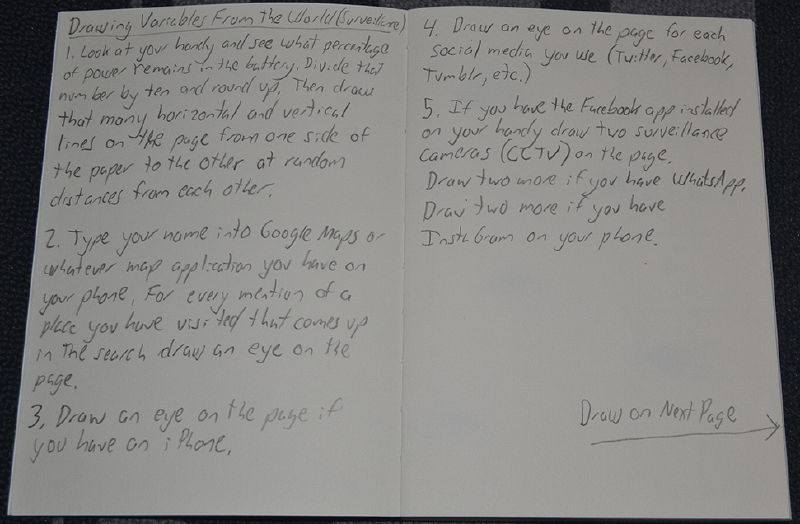 Drawing Variables From the World (Surveillance)
1. Look at your handy and see what percentage
of power remains in the battery. Divide that
number by ten and round up. Then draw
that many horizontal and vertical
lines on the page from one side of
the paper to the other at random
distances from each other.
2. Type your name into Google Maps or
whatever map application you have on
your phone. For every mention of a
place you have visited that comes up
in the search draw an eye on the
page.
3. Draw an eye on the page if
you have an iPhone.
4. Draw an eye on the page for each
social media you use (Twitter, Facebook,
Tumblr, etc.)
5. If you have the Facebook app installed
on your handy draw two surveillance
cameras (CCTV) on the page.
Draw two more if you have WhatsApp.
Draw two more if you have
InstaGram on your phone.
Draw on Next Page